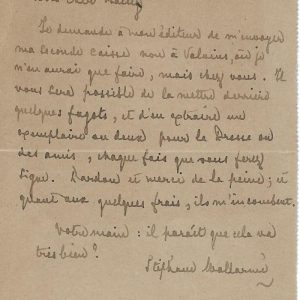 Mon cher Mauny
Je demande à mon éditeur de m'envoyer
ma seconde caisse non à Valvins, où je
n'en aurai que faire, mais chez vous. Il
vous sera possible de la mettre derrière
quelques fagots, et d'en extraire un
exemplaire ou deux pour la Presse ou
des amis, chaque fois que vous ferez
signe. Pardon et merci de la peine; et
quant aux quelques frais, ils m'incombent.
Votre main : il paraît que cela va
très bien?
Stéphane Mallarmé